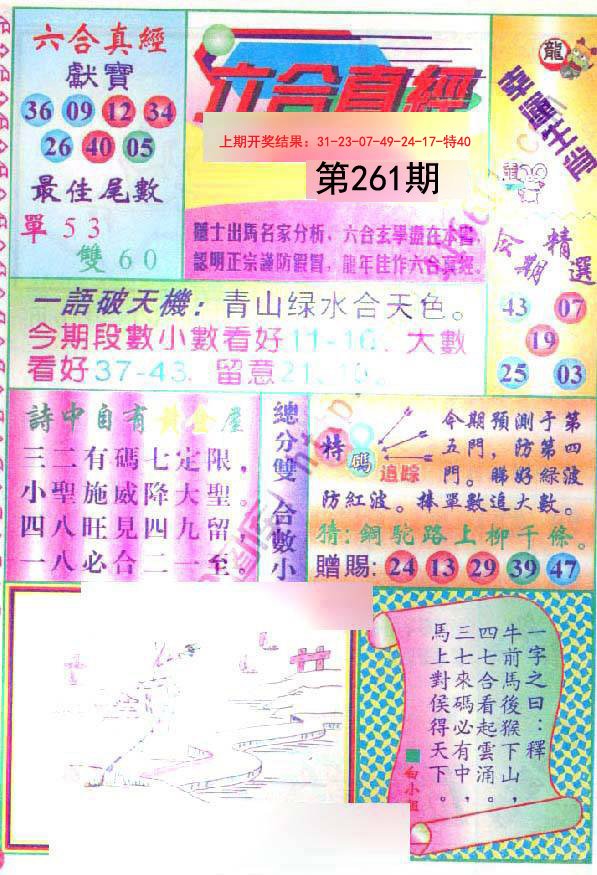 六合真經
獻寶
36 09 12 34
26 40 05
最佳尾數
單 5 3
雙 6 0
六合真經
上期开奖结果：31-23-07-49-24-17-特40
第261期
道士出馬名家分析，六合玄學盡在本書，
認明正宗謹防假冒，龍年佳作六合真經。
龍
幸運生肖
今期
精選
43 07
19
25 03
一語破天機：青山绿水合天色。
今期段數小數看好11-16、大數
看好37-43、留意21、10。
詩中自有黃金屋
三二有碼七定限，
小聖施威降大聖。
四八旺見四九留，
一八必合二一至。
總分雙 合數小
特碼
追踪
今期預測于第
五門，防第四
門。睇好綠波
防紅波。捧單數追大數。
猜：銅駝路上柳千條。
贈賜：24 13 29 39 47
一字之曰：釋
牛前馬後猴下山，
四七合看起雲涌。
三七來碼必有中，
馬上對侯得天下。
白小姐